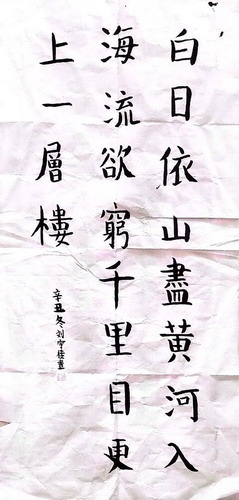 白日依山盡黃河入
海流欲窮千里目更
上一層樓
辛丑冬刘宇桂書